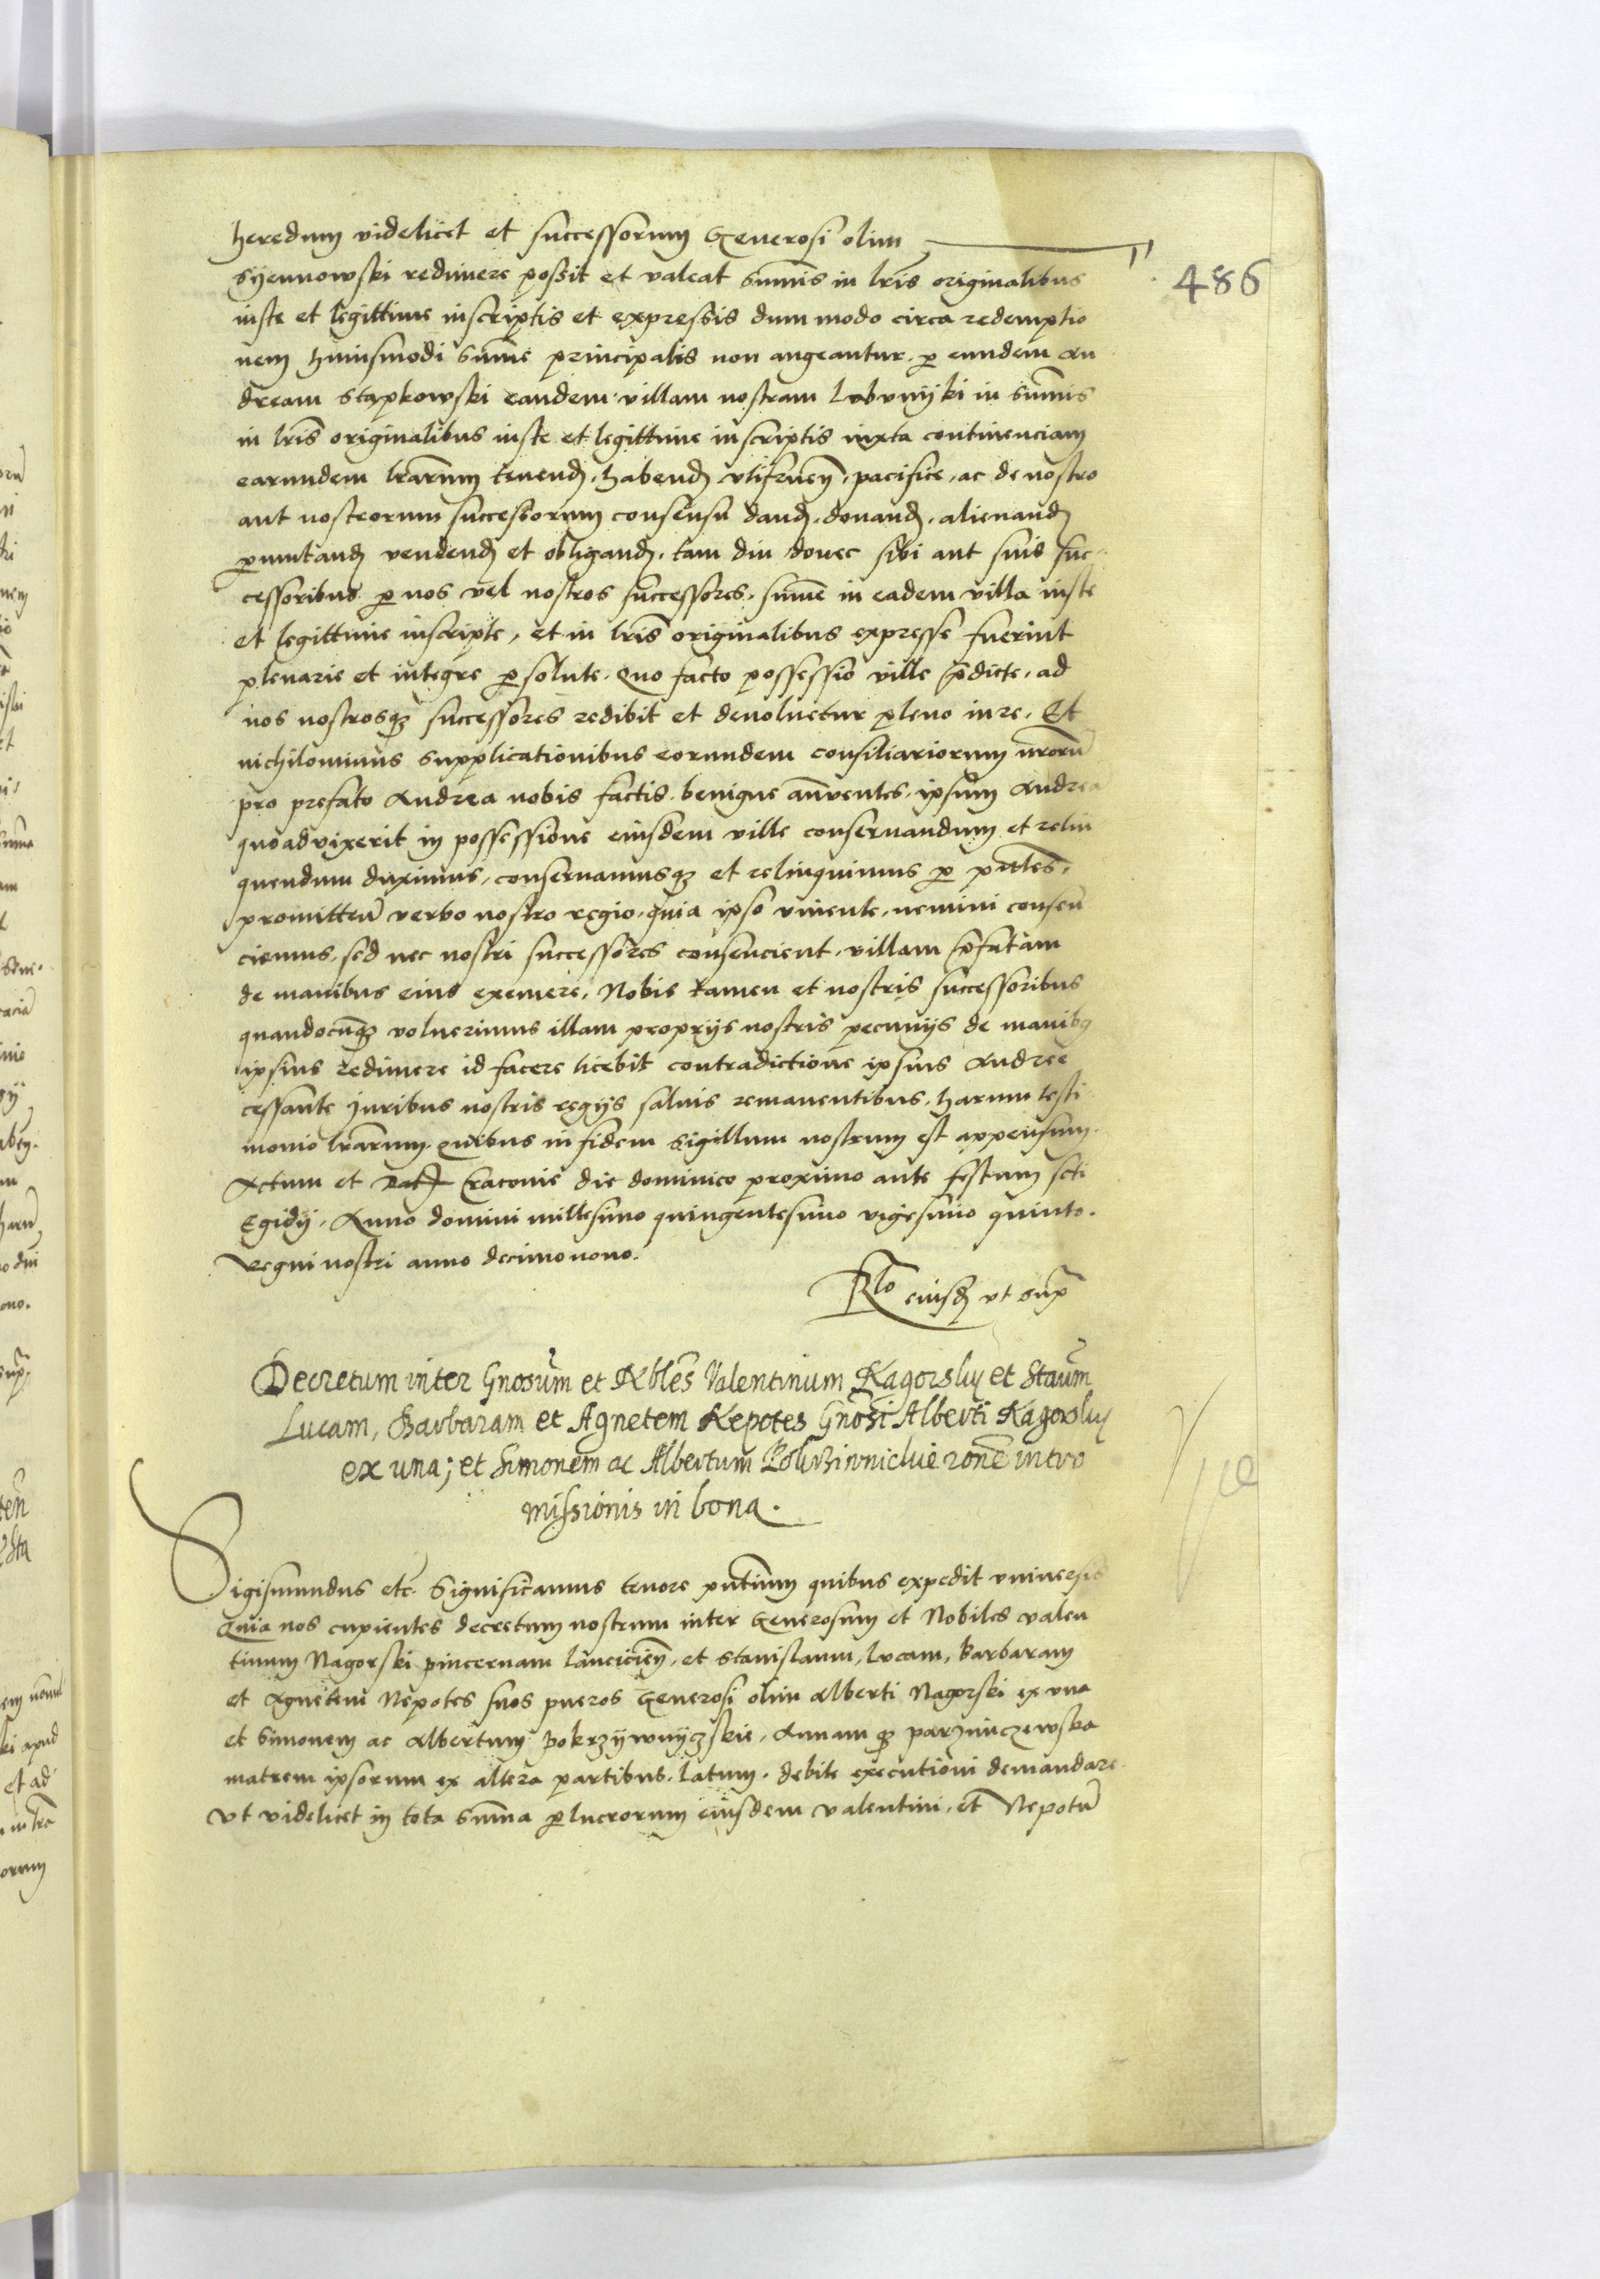 heredum videlicet et successorum Generosi olim
Syennowski redimere possit et valeat summis in lris originalibus
iuste et legittime inscriptis et expressis dum modo circa redemptio
nem huiusmodi summe principalis non augeantur. per eundem An
dream Stapkowski eandem villam nostram in summis
in lris originalibus iuste et legittime inscriptis iuxta continenciam
earundem lrarum tenend, habend, utifruen, pacifice, ac de nostro
aut nostrorum successorum consensu dand, donand, alienand
permutand vendend et obligand, tam diu donec sibi aut suis suc-
cessoribus per nos vel nostros successores, summe in eadem villa iuste
et legittime inscripte, et in lris originalibus expresse fuerint
plenarie et integre persolute. Quo facto possessio ville predicte, ad
nos nostrosque successores redibit et devoluetur pleno iure. Et
nichilominus supplicationibus eorundem consiliariorum nrorum
pro prefato Andrea nobis factis, benigne annuentes, ipsum Andrea
quoad vixerit in possessione eiusdem ville conservandum et relin
quendum duximus, conservamusque et relinquimus per pntes,
promitten verbo nostro regio, quia ipso vivente, nemini consen
ciemus, sed nec nostri successores consencient, villam prefatam
de manibus eius eximere, Nobis tamen et nostris successoribus
quandocunque voluerimus illam proprijs nostris pecunijs de manibus
ipsius redimere id facere licebit contradictione ipsius Andree
cessante Juribus nostris regijs salvis remanentibus. harum testi
monio lrarum quibus in fidem sigillum nostrum est appensum.
Actum et Dat Cracovie die dominico proximo ante festum scti
Egidij, Anno domini millesimo quingentesimo vigesimo quinto.
Regni nostri anno decimonono.
Rlo eiusd ut supra
486
Decretum inter Gnosum et Nbles Valentinum Nagorsky et Staum
Lucam, Barbaram et Agnetem Nepotes Gnosi Alberti Nagorsky
ex una; et Simonem ac Albertum rone intro
missionis in bona.
Sigismundus etc. Significamus tenore pntium quibus expedit universis
Quia nos cupientes decretum nostrum inter Generosum et Nobiles Valen
tinum Nagorski pincernam lancicien, et Stanislaum, Lucam, Barbaram
et Agnetem Nepotes suos pueros Generosi olim Alberti Nagorski ex una
et Simonem ac Albertum Pokrzywnyczskie, Annam que Parznyczewska
matrem ipsorum ex altera partibus, latum, debite executioni demandare
Ut videlicet in tota summa perlucrorum eiusdem Valentini, et Nepotum